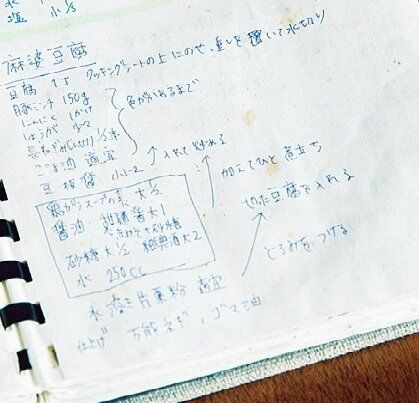 水
塩 小1/3
麻婆豆腐
豆腐 1丁 クッキングシートの上にのせ、重しを置いて水切り
豚ミンチ 150g
にんにく 1かけ
しょうが 少々 色がかわるまで
長ねぎ(みじん切り) 1/2本
ごま油 適宜
豆板醤 小1~2 入れて炒める
鶏がらスープの素 大1/2 加えてひと煮立ち
醤油 甜麺醤大1
砂糖大1/2 紹興酒大2 切った豆腐を入れる
水 250cc
水溶き片栗粉 適宜 とろみをつける
仕上げ 万能ネギ、ゴマ油